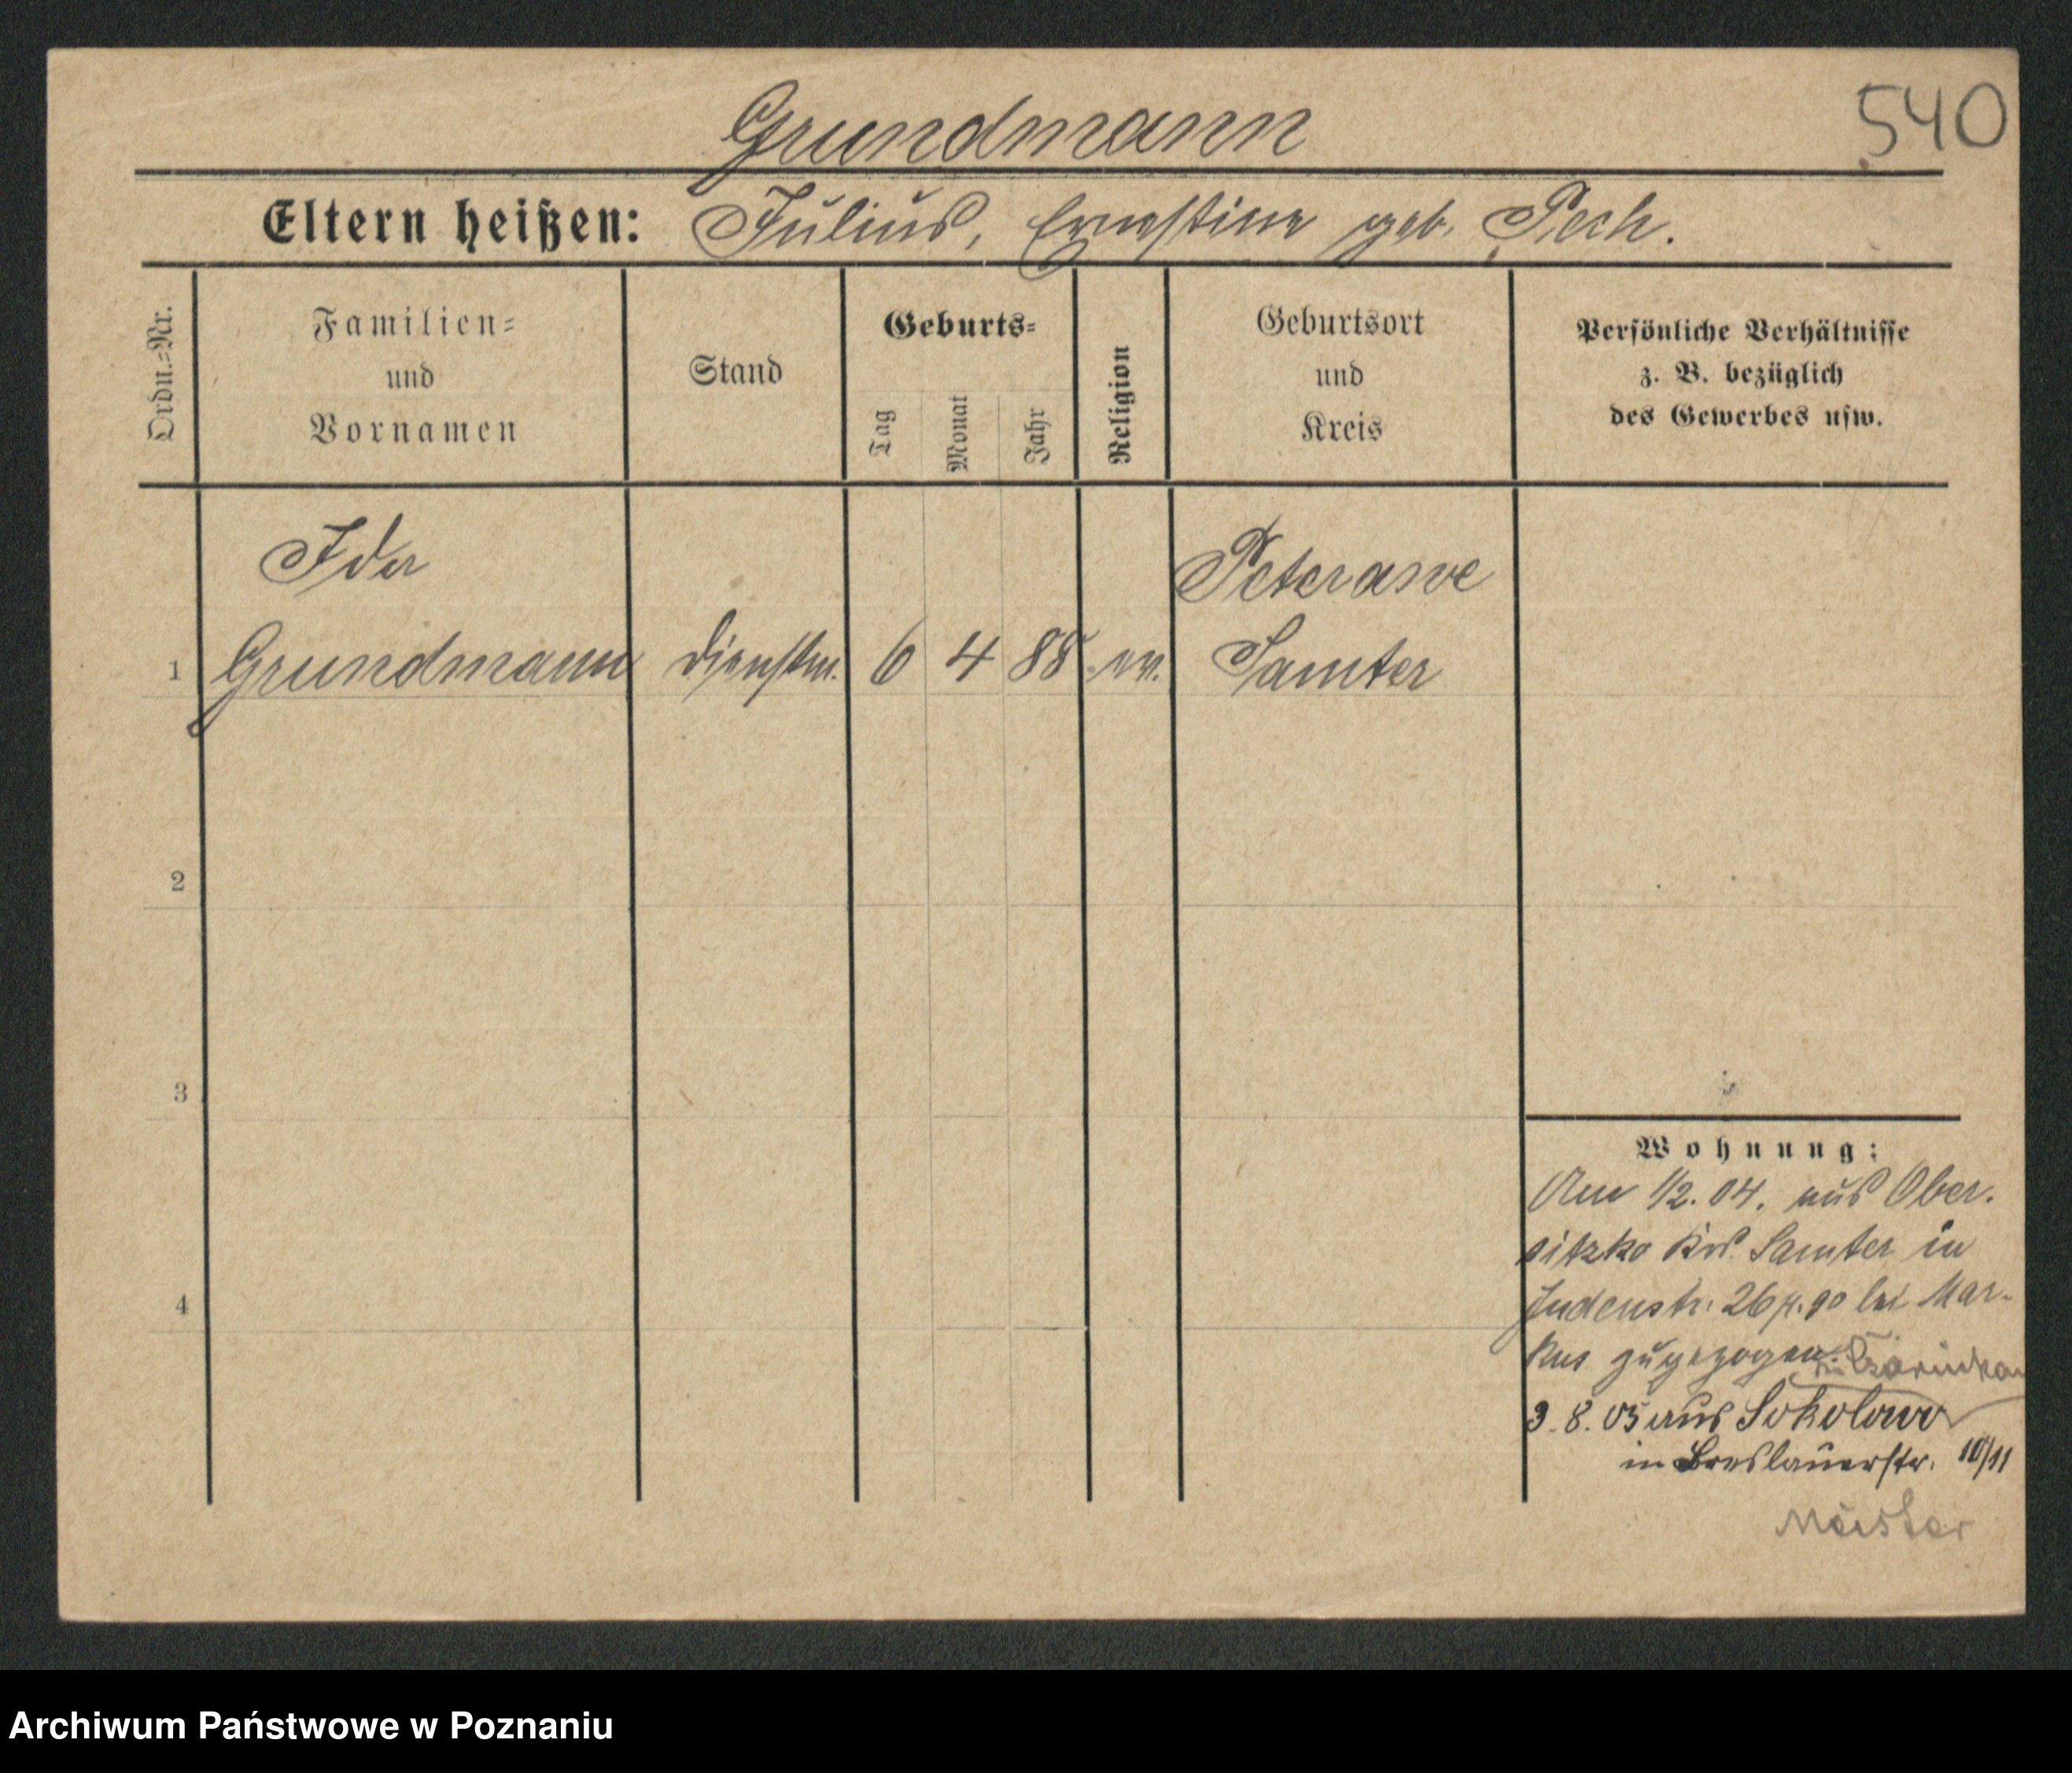 Grundmann
540
Eltern heißen: Julius, Ernestine geb. Pech.
Ordn.-Nr.
Familien-
und
Vornamen
Stand
Geburts-
Tag
Monat
Jahr
Religion
Geburtsort
und
Kreis
Persönliche Verhältnisse
z. B. bezüglich
des Gewerbes usw.
Ida
Peterawe
1 Grundmann Dienstm. 6 4 88 ev. Samter
2
3
4
Wohnung:
Am 1/2. 04. aus Ober-
sitzko Krs. Samter in
Judenstr. 26 p. go bei Mar-
kus zugezogen.
3. 8. 05 aus Sokolowo
in Breslauerstr. 10/11
Meister
Archiwum Państwowe w Poznaniu